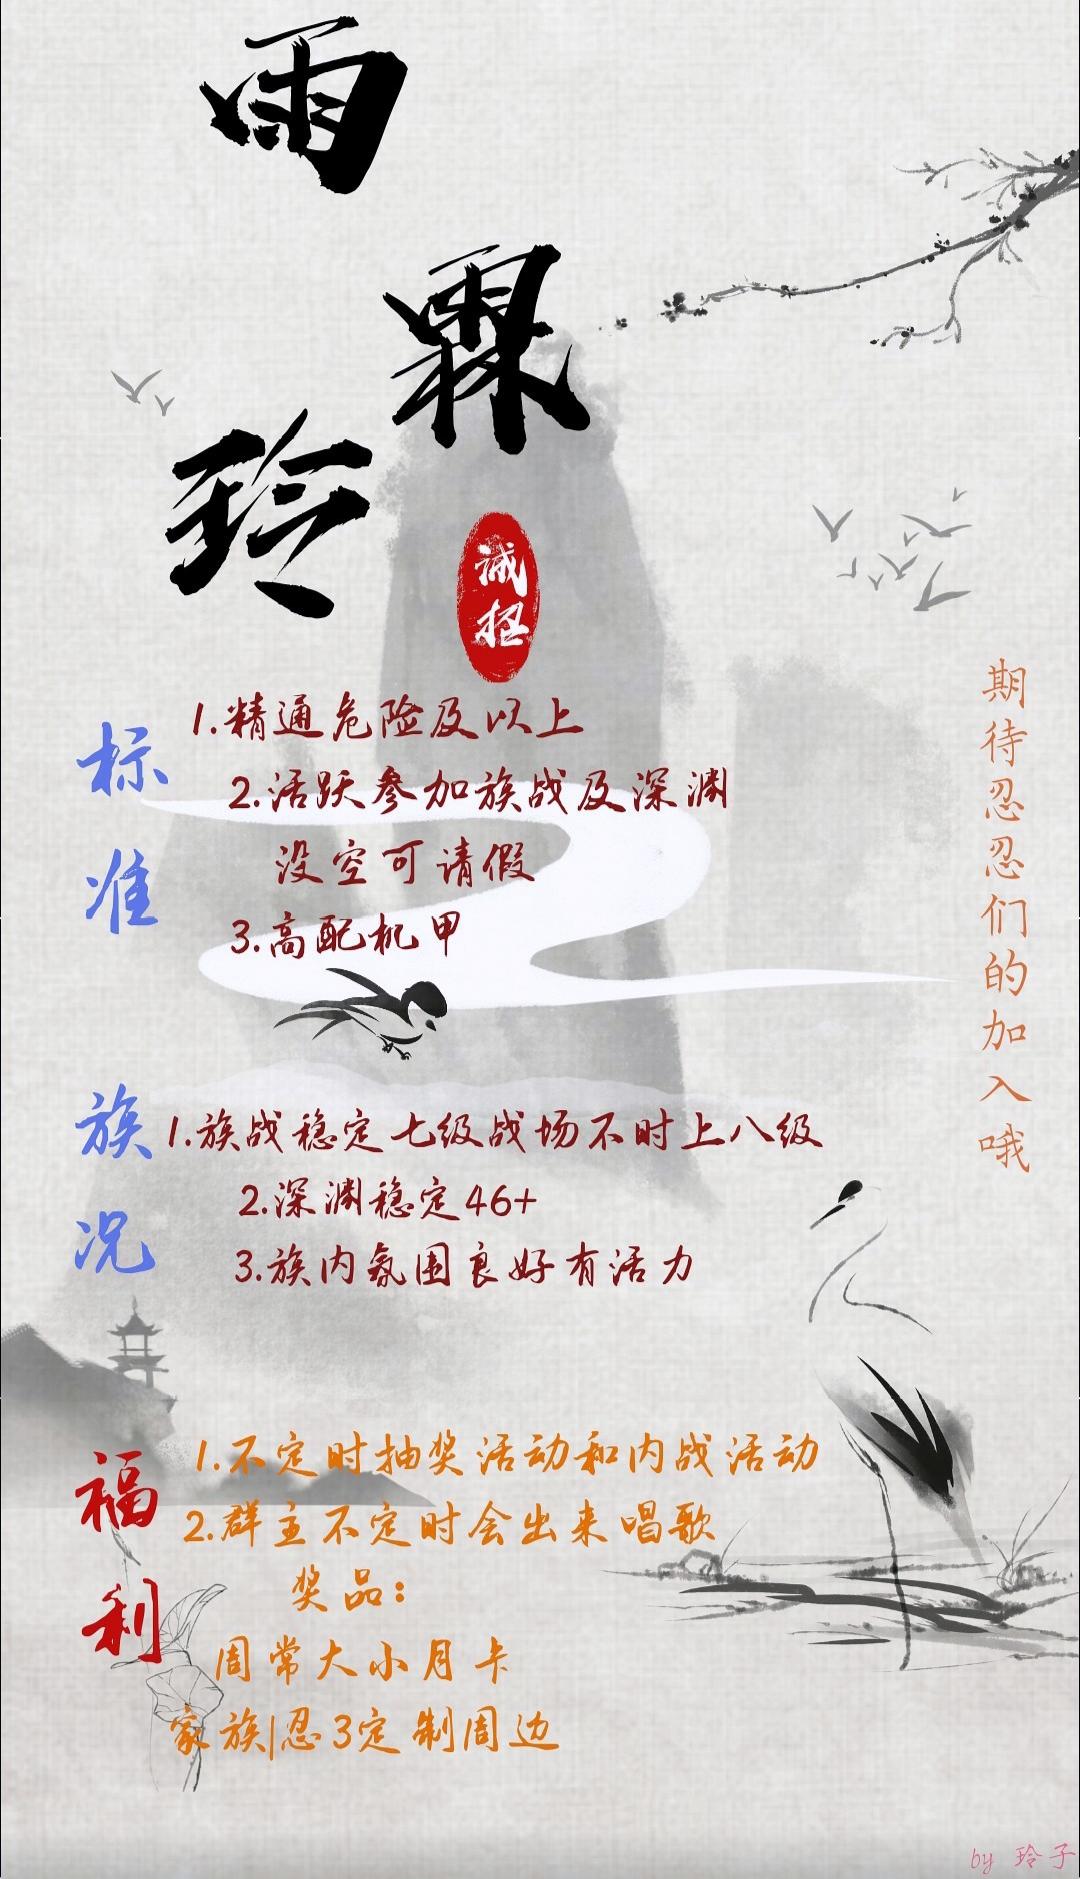 雨
霖
玲
诚招
标准
1.精通危险及以上
2.活跃参加族战及深渊
没空可请假
3.高配机甲
族况
1.族战稳定七级战场不时上八级
2.深渊稳定46+
3.族内氛围良好有活力
福利
1.不定时抽奖活动和内战活动
2.群主不定时会出来唱歌
奖品：
周常大小月卡
家族|忍3定制周边
期待忍忍们的加入哦
by 玲子